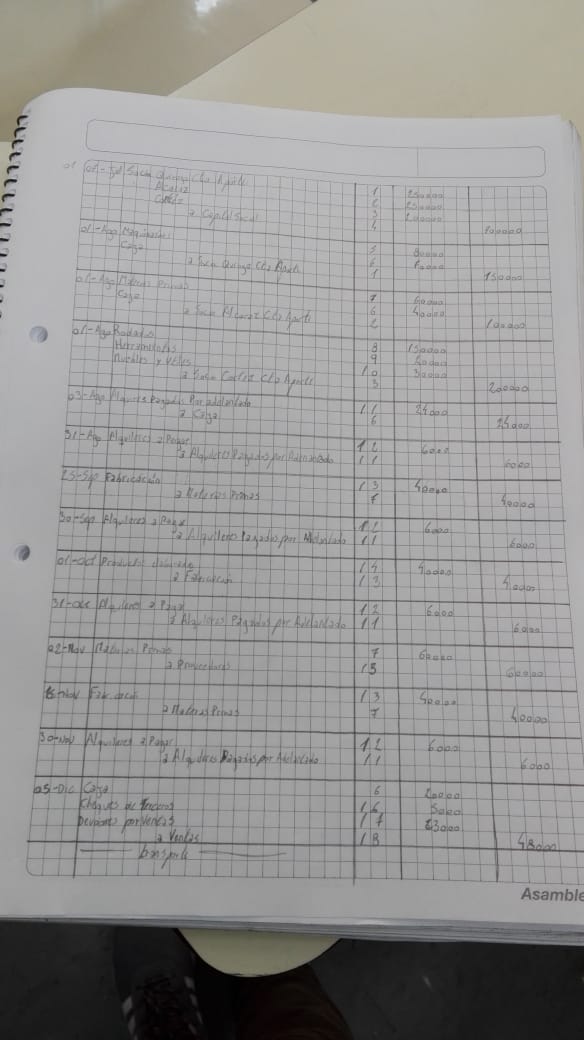 01 01-Jul Socio Quiroga Cta Aporte 1 250000
Alcaraz 2 250000
Cortez 3 200000
a Capital Social 4 700000
01-Ago Maquinarias 5 80000
Caja 6
a Socio Quiroga Cta Aporte 1 150000
01-Ago Materias Primas 7 60000
Caja 6 40000
a Socio Alcaraz Cta Aporte 2 100000
01-Ago Rodados 8 150000
Herramientas 9
Muebles y Utiles 10 30000
a Socio Cortez Cta Aporte 3 200000
03-Ago Alquileres Pagados Por adelantado 11 24000
a Caja 6 24000
31-Ago Alquileres a Pagar 12 6000
a Alquileres Pagados por Adelantado 11 6000
25-Sep Fabricación 13 40000
a Materias Primas 7 40000
30-Sep Alquileres a Pagar 12 6000
a Alquileres Pagados por Adelantado 11 6000
01-Oct Productos 14 40000
a Fabricacion 13 40000
31-Oct Alquileres a Pagar 12 6000
a Alquileres Pagados por Adelantado 11 6000
02-Nov Materias Primas 7 60000
a Proveedores 15 60000
15-Nov Fabricacion 13 40000
a Materias Primas 7 40000
30-Nov Alquileres a Pagar 12 6000
a Alquileres Pagados por Adelantado 11 6000
05-Dic Caja 6 20000
Cheques de Terceros 16 5000
Deudores por Ventas 17 23000
a Ventas 18 48000
transporte
Asamble